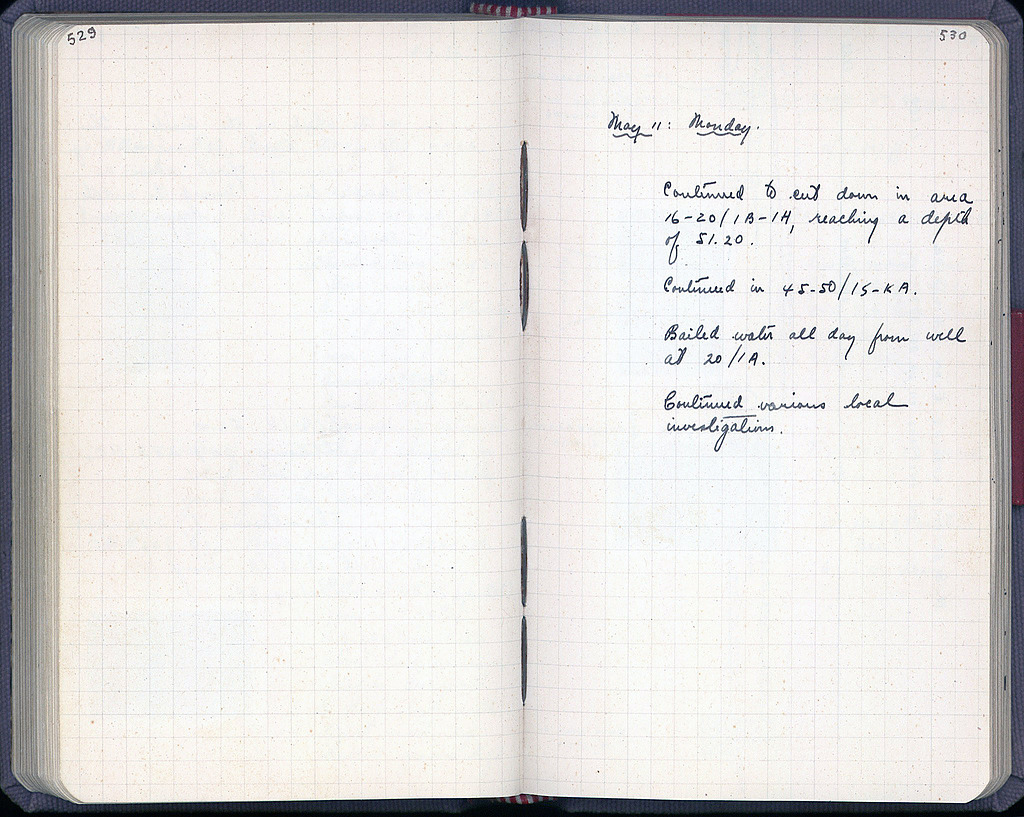 529
530
May 11: Monday.
Continued to cut down in area
16-20/1B-1H, reaching a depth
of 51.20.
Continued in 45-50/15-KA.
Bailed water all day from well
at 20/1A.
Continued various local
investigations.